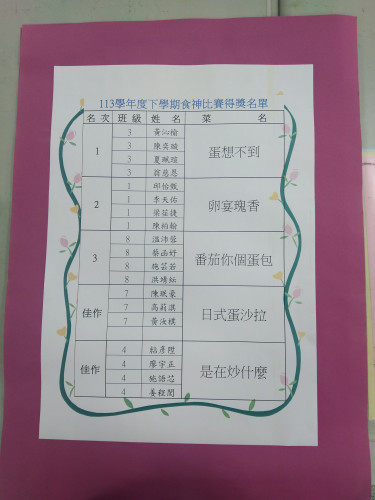 113學年度下學期食神比賽得獎名單
名次 班級 姓名 菜名
1 蛋想不到
3 黃沁榆
3 陳奕
3 夏
3 翁慈恩
2 卵宴瑰香
1 邱怡甄
1 李天佑
1 梁茲捷
1 陳柏翰
3 番茄你個蛋包
8 溫沛蓉
8 蔡函妤
8 施芸若
8 洪靖紜
佳作 日式蛋沙拉
7 陳珉豪
7 高莉淇
7 黃汝祺
佳作 是在炒什麼
4 彥陞
4 廖宇正
4 施語芯
4 姜程閎